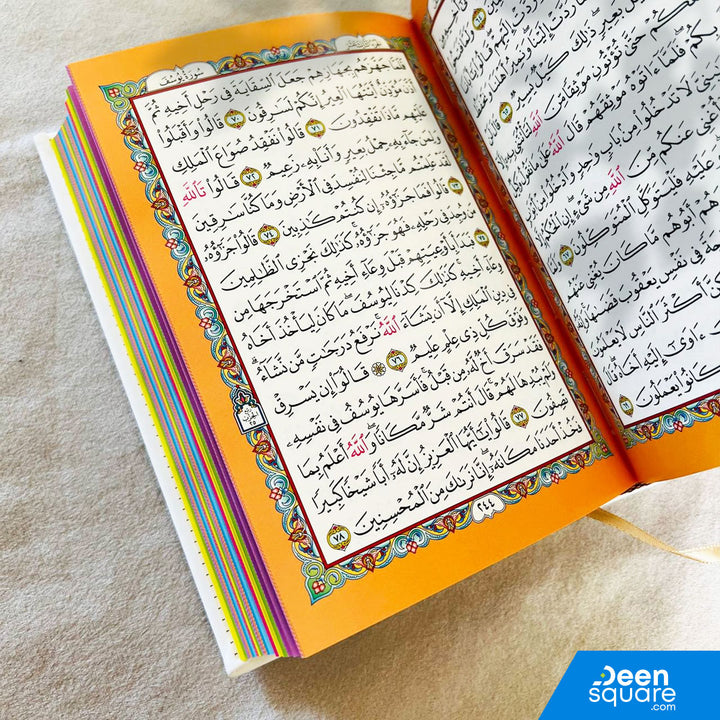 سُورَةُ يُوسُفَ
فَلَمَّا جَهَّزَهُم بِجَهَازِهِمْ جَعَلَ ٱلسِّقَايَةَ فِى رَحْلِ أَخِيهِ ثُمَّ
أَذَّنَ مُؤَذِّنٌ أَيَّتُهَا ٱلْعِيرُ إِنَّكُمْ لَسَٰرِقُونَ ٧٠ قَالُوا۟ وَأَقْبَلُوا۟
عَلَيْهِم مَّاذَا تَفْقِدُونَ ٧١ قَالُوا۟ نَفْقِدُ صُوَاعَ ٱلْمَلِكِ
وَلِمَن جَآءَ بِهِۦ حِمْلُ بَعِيرٍ وَأَنَا۠ بِهِۦ زَعِيمٌ ٧٢ قَالُوا۟ تَٱللَّهِ
لَقَدْ عَلِمْتُم مَّا جِئْنَا لِنُفْسِدَ فِى ٱلْأَرْضِ وَمَا كُنَّا سَٰرِقِينَ
٧٣ قَالُوا۟ فَمَا جَزَٰٓؤُهُۥٓ إِن كُنتُمْ كَٰذِبِينَ ٧٤ قَالُوا۟ جَزَٰٓؤُهُۥ
مَن وُجِدَ فِى رَحْلِهِۦ فَهُوَ جَزَٰٓؤُهُۥ كَذَٰلِكَ نَجْزِى ٱلظَّٰلِمِينَ
٧٥ فَبَدَأَ بِأَوْعِيَتِهِمْ قَبْلَ وِعَآءِ أَخِيهِ ثُمَّ ٱسْتَخْرَجَهَا مِن
وِعَآءِ أَخِيهِ كَذَٰلِكَ كِدْنَا لِيُوسُفَ مَا كَانَ لِيَأْخُذَ أَخَاهُ
فِى دِينِ ٱلْمَلِكِ إِلَّآ أَن يَشَآءَ ٱللَّهُ نَرْفَعُ دَرَجَٰتٍ مَّن نَّشَآءُ
وَفَوْقَ كُلِّ ذِى عِلْمٍ عَلِيمٌ ٧٦ ۞ قَالُوٓا۟ إِن يَسْرِقْ
فَقَدْ سَرَقَ أَخٌ لَّهُۥ مِن قَبْلُ فَأَسَرَّهَا يُوسُفُ فِى نَفْسِهِۦ
وَلَمْ يُبْدِهَا لَهُمْ قَالَ أَنتُمْ شَرٌّ مَّكَانًا وَٱللَّهُ أَعْلَمُ بِمَا
تَصِفُونَ ٧٧ قَالُوا۟ يَٰٓأَيُّهَا ٱلْعَزِيزُ إِنَّ لَهُۥٓ أَبًا شَيْخًا كَبِيرًا
فَخُذْ أَحَدَنَا مَكَانَهُۥٓ إِنَّا نَرَىٰكَ مِنَ ٱلْمُحْسِنِينَ ٧٨
٢٤٤
ذَٰلِكَ كَيْلٌ يَسِيرٌ
حَتَّىٰ تُؤْتُونِ مَوْثِقًا مِّنَ ٱللَّهِ لَتَأْتُنَّنِى
فَلَمَّآ ءَاتَوْهُ مَوْثِقَهُمْ قَالَ ٱللَّهُ عَلَىٰ مَا نَقُولُ
لَا تَدْخُلُوا۟ مِنۢ بَابٍ وَٰحِدٍ وَٱدْخُلُوا۟ مِنْ
أُغْنِى عَنكُم مِّنَ ٱللَّهِ مِن شَىْءٍ إِنِ
فَلْيَتَوَكَّلِ ٱلْمُتَوَكِّلُونَ ٦٧
أَبُوهُم مَّا كَانَ يُغْنِى عَنْهُم
فِى نَفْسِ يَعْقُوبَ قَضَىٰهَا
أَكْثَرَ ٱلنَّاسِ لَا يَعْلَمُونَ
ءَاوَىٰٓ إِلَيْهِ أَخَاهُ قَالَ
كَانُوا۟ يَعْمَلُونَ ٦٩
Deen
square
.com